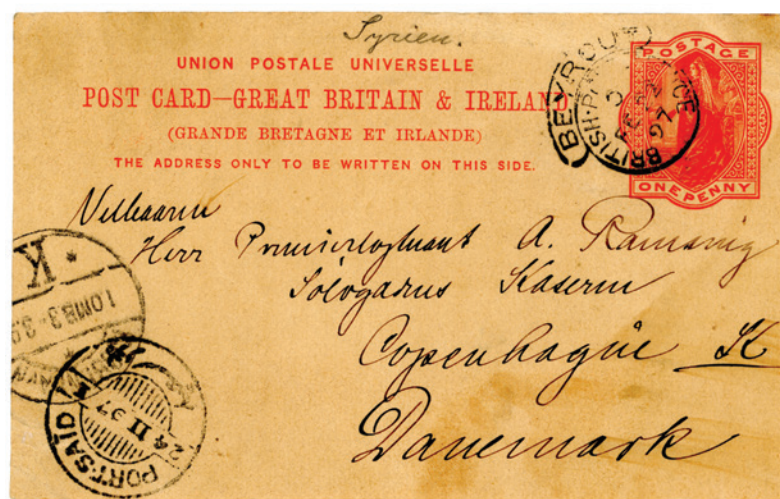 Syrien.
UNION POSTALE UNIVERSELLE
POST CARD—GREAT BRITAIN & IRELAND
(GRANDE BRETAGNE ET IRLANDE)
THE ADDRESS ONLY TO BE WRITTEN ON THIS SIDE.
POSTAGE
ONE PENNY
BEYROUT
BRITISH
FE 22
97
Herr Premierløjtnant A. Ramsing
Sølvgadens Kaserne
Copenhague K
Danemark
K
PORT-SAID
24 II 97